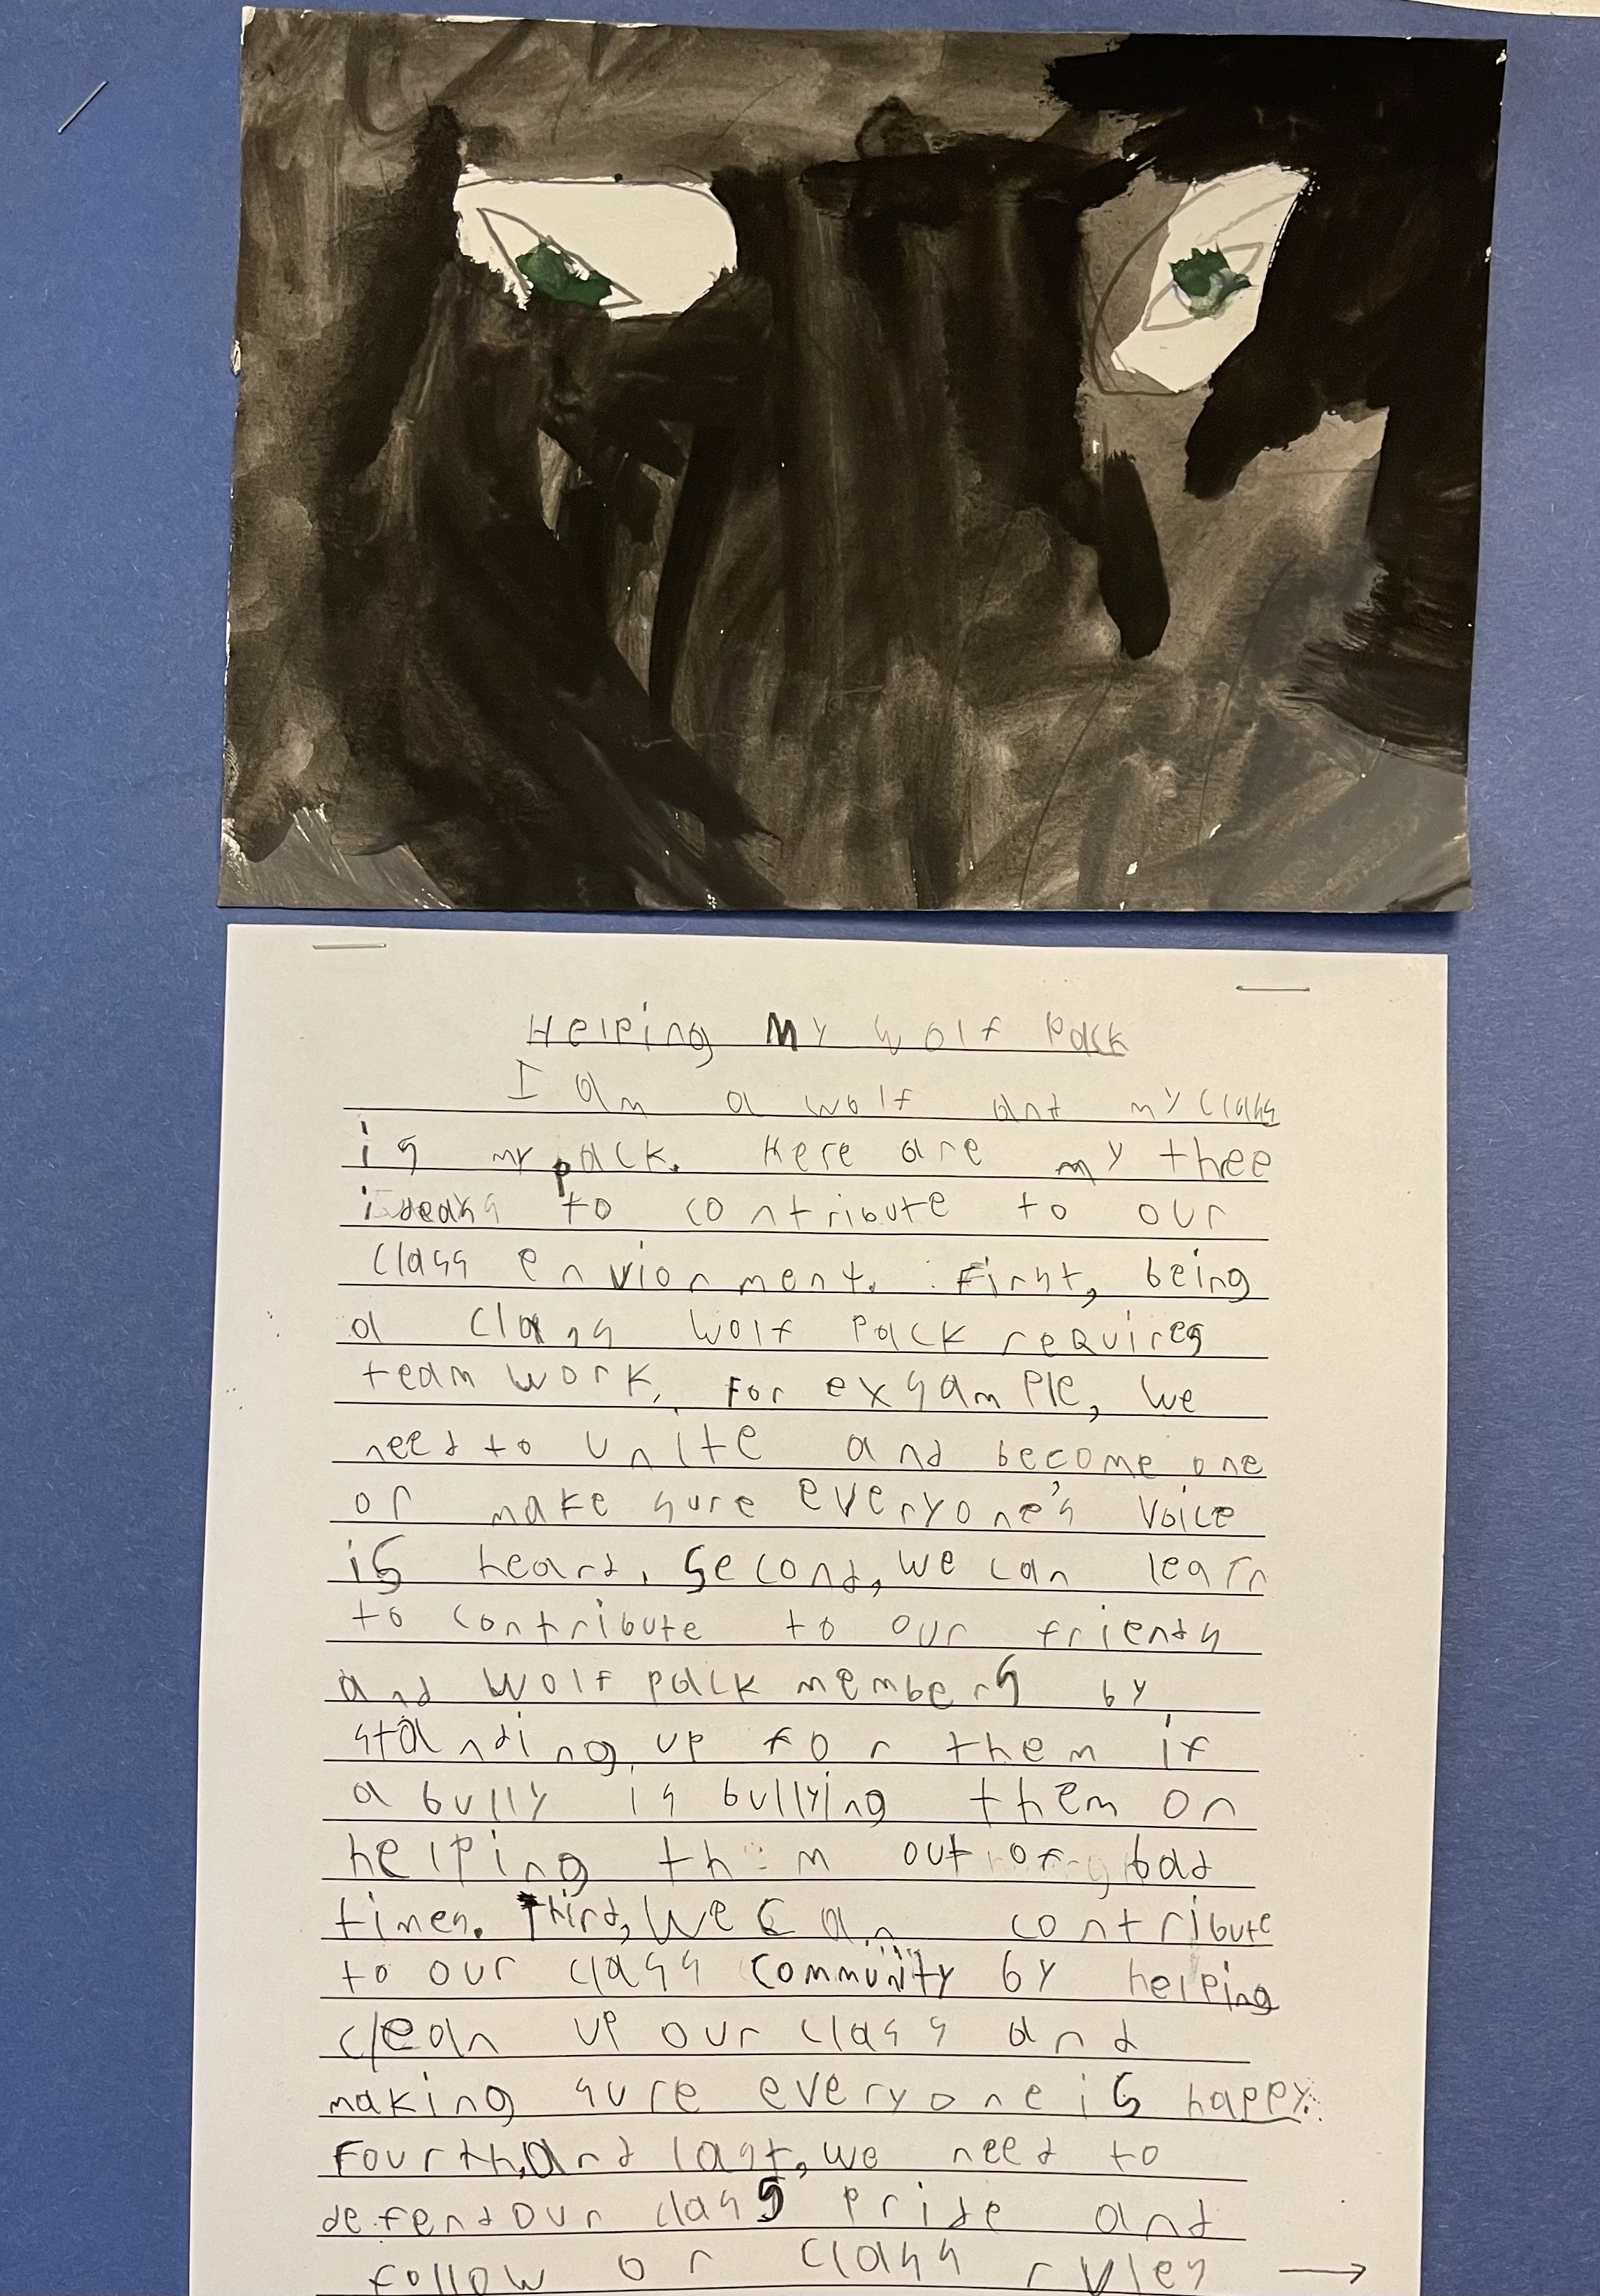 Helping My Wolf Pack
I am a wolf and my class
is my pack. Here are my thee
ideas to contribute to our
class enviornment. First, being
a class wolf pack requires
team work. For exsample, we
need to unite and become one
or make sure everyone's voice
is heard. Second, we can learn
to contribute to our friends
and wolf pack members by
standing up for them if
a bully is bullying them or
helping them out of bad
times. Third, we can contribute
to our class community by helping
clean up our class and
making sure everyone is happy.
Fourth, and last, we need to
defend our class pride and
follow or class rules →